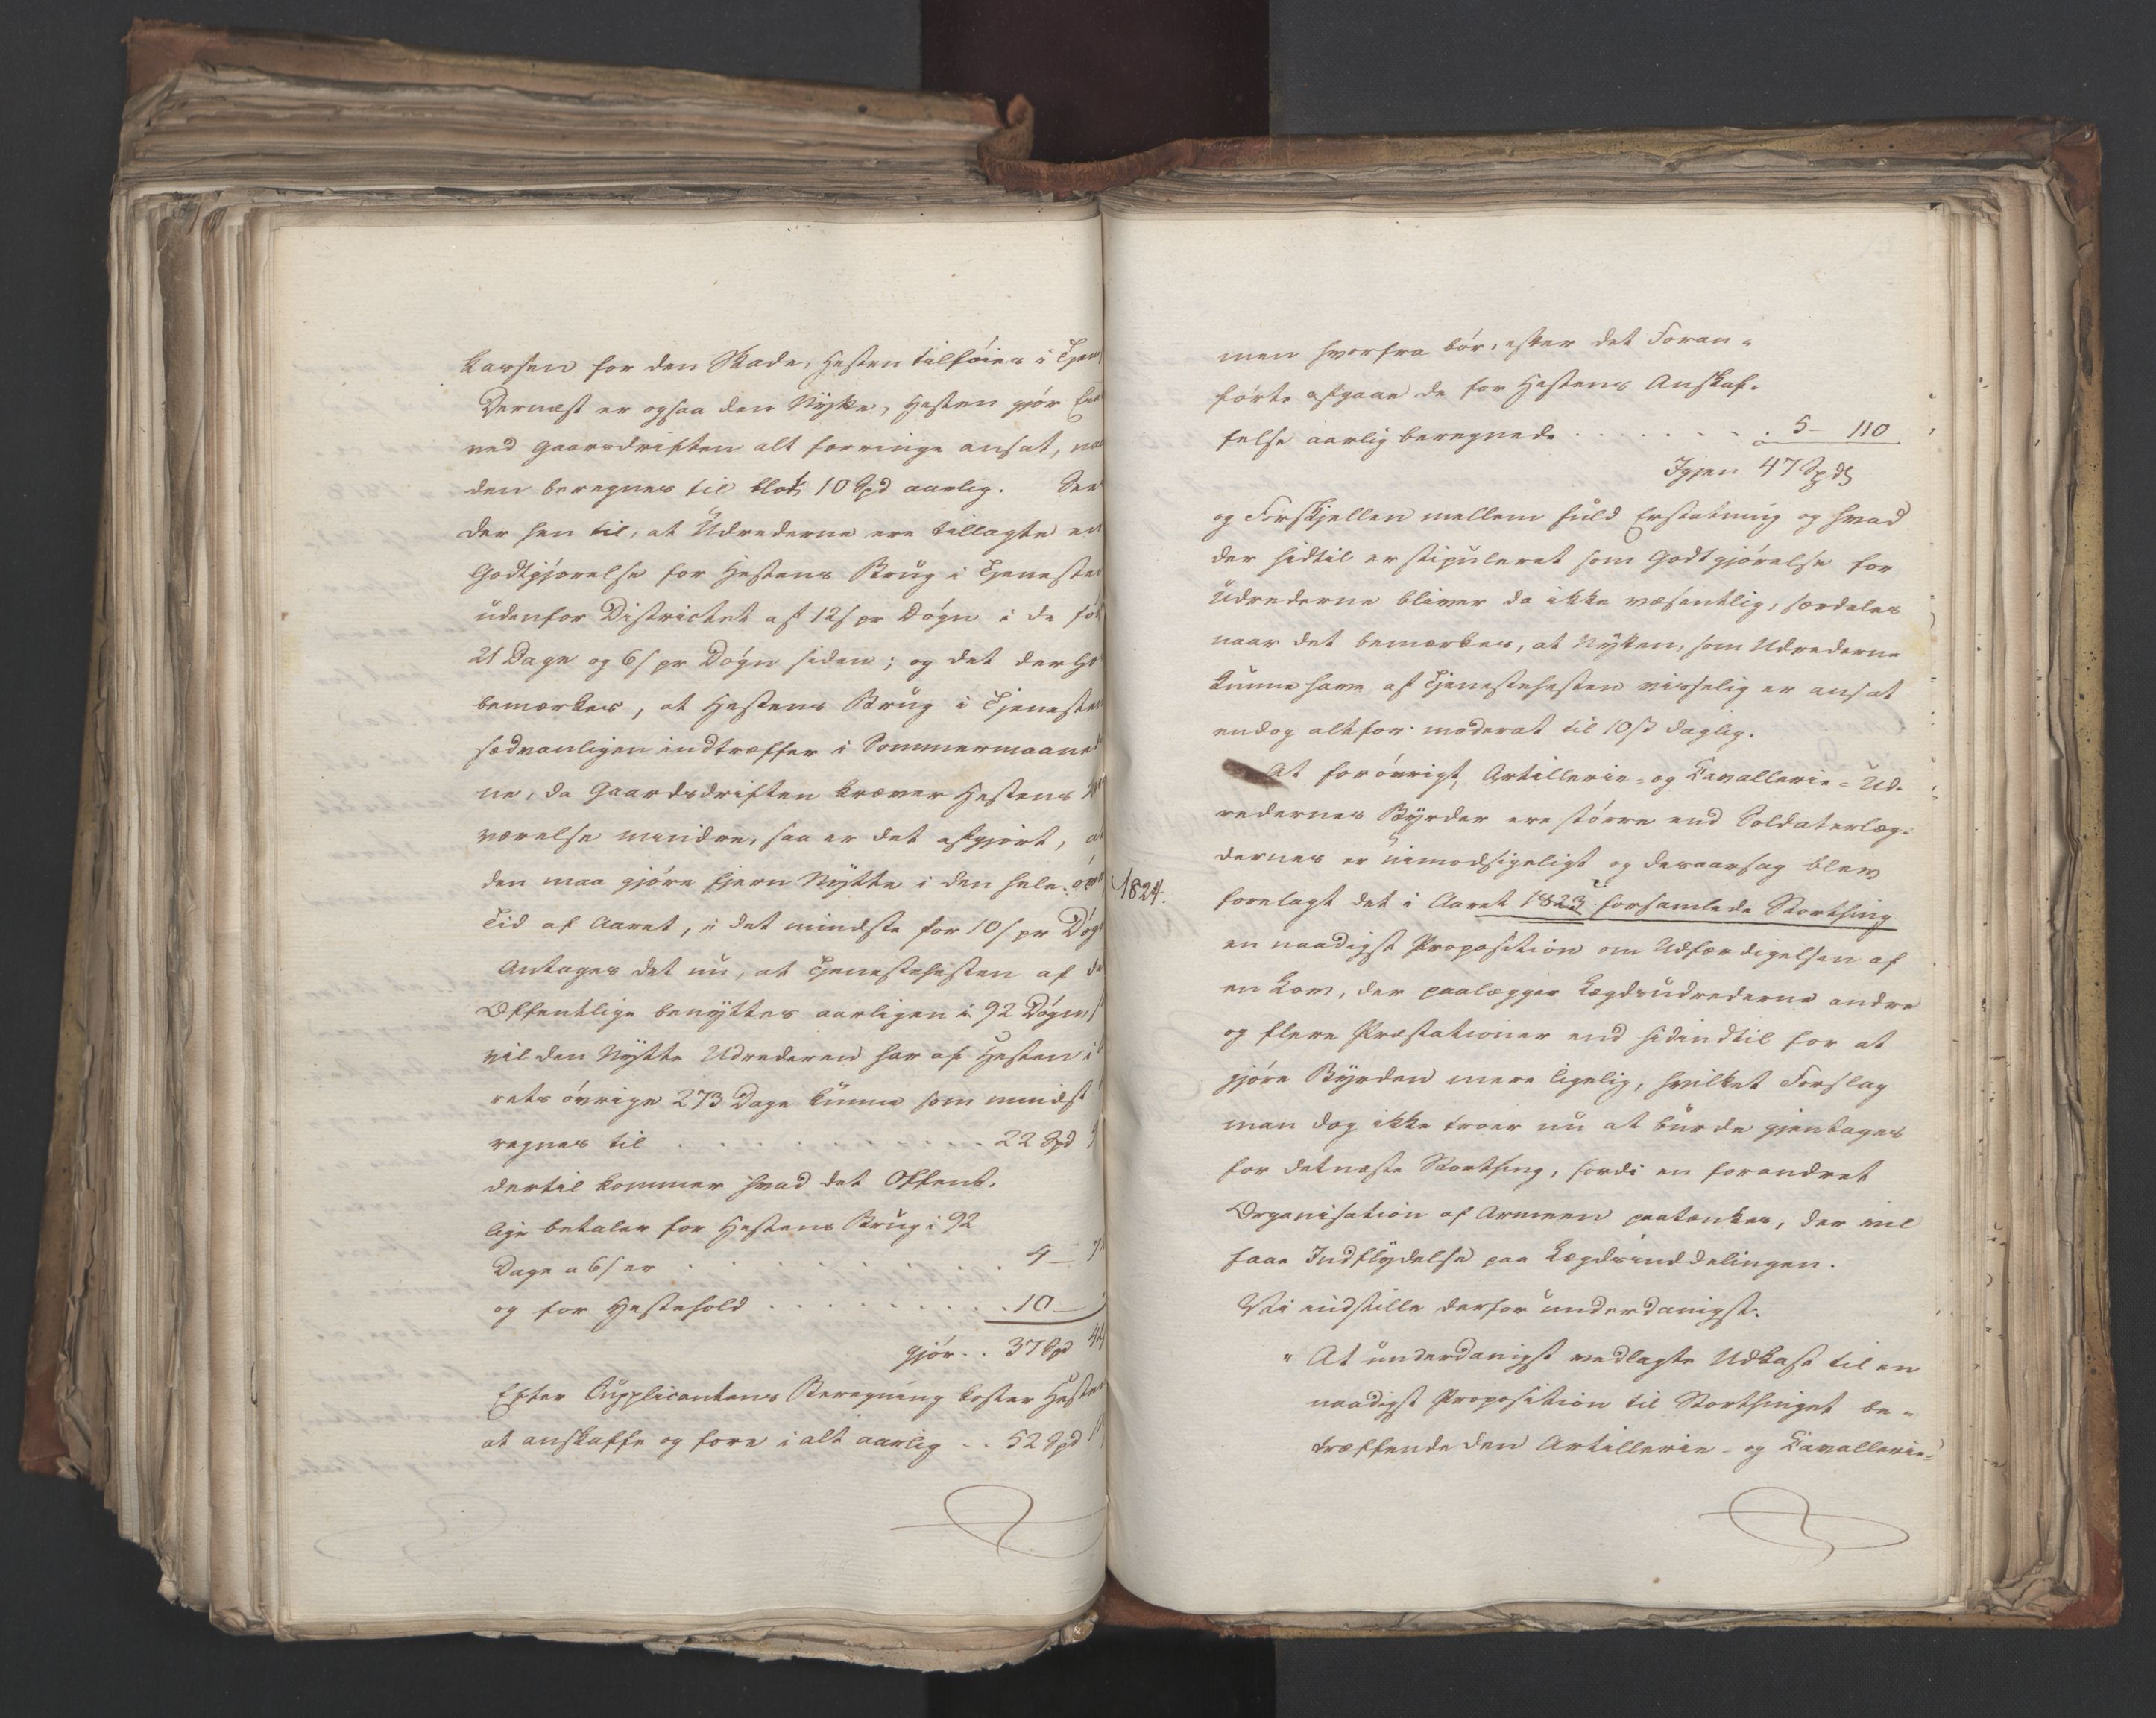 kassen for den Skade, Hesten tilføies i
Dernæst er ogsaa den Nytte, Hesten gjør
ved Gaardsdriften alt forringe ansat,
den beregnes til blot 10 Spd aarlig.
der hen til, at Udrederne ere tillagte en
Godtgjørelse for Hestens Brug i Tjenesten
udenfor Districtet af 12 s pr Døgn i de
21 Dage og 6 s pr Døgn siden; og det der
bemærkes, at Hestens Brug i Tjenesten
sædvanligen indtræffer i Sommermaaned
ne, da Gaardsdriften kræver Hestens
værelse mindre, saa er det afgjort, at
den maa gjøre sin Nytte i den hele
Tid af Aaret, i det mindste for 10 s pr Døgn
Antages det nu, at Tjenestehesten af det
Offentlige benyttes aarligen i 92 Døgn,
vil den Nytte Udrederen har af Hesten i
rets øvrige 273 Dage kunne som mindst
regnes til . . . . . . . . . . . 22 Spd
dertil kommer hvad det Offent-
lige betaler for Hestens Brug i 92
Dage a 6 s er . . . . . . . . 4 —
og for Hestehold . . . . . . . . . 10 —
gjør . . 37 Spd 44
Efter Supplicantens Beregning koster Hesten
at anskaffe og fore i alt aarlig . . 52 Spd
men hvorfra bør, efter det Foran-
førte afgaae de for Hestens Anskaf-
felse aarlig beregnede . . . . . . . 5 — 110
Igjen 47 Spd
og Forskjellen mellem fuld Erstatning og hvad
der hidtil er stipuleret som Godtgjørelse for
Udrederne bliver da ikke væsentlig, særdeles
naar det bemærkes, at Nytten, som Udrederne
kunne have af Tjenestehesten visselig er ansat
endog altfor moderat til 10 s daglig.
At forøvrigt, Artillerie- og Cavallerie-Ud-
redernes Byrder ere større end Soldaterlæg-
dernes er uimodsigeligt og desaarsag blev
1824.
forelagt det i Aaret 1823 forsamlede Storthing
en naadigst Proposition om Udfærdigelsen af
en Lov, der paalægger Lægdsudrederne andre
og flere Præstationer end hidindtil for at
gjøre Byrden mere ligelig, hvilket Forslag
man dog ikke troer nu at burde gjentages
for det næste Storthing, fordi en forandret
Organisation af Armeen paatænkes, der vil
faae Indflydelse paa Lægdsinddelingen.
Vi indstille derfor underdanigst:
" At underdanigst vedlagte Udkast til en
naadigst Proposition til Storthinget be-
træffende den Artillerie- og Cavallerie-